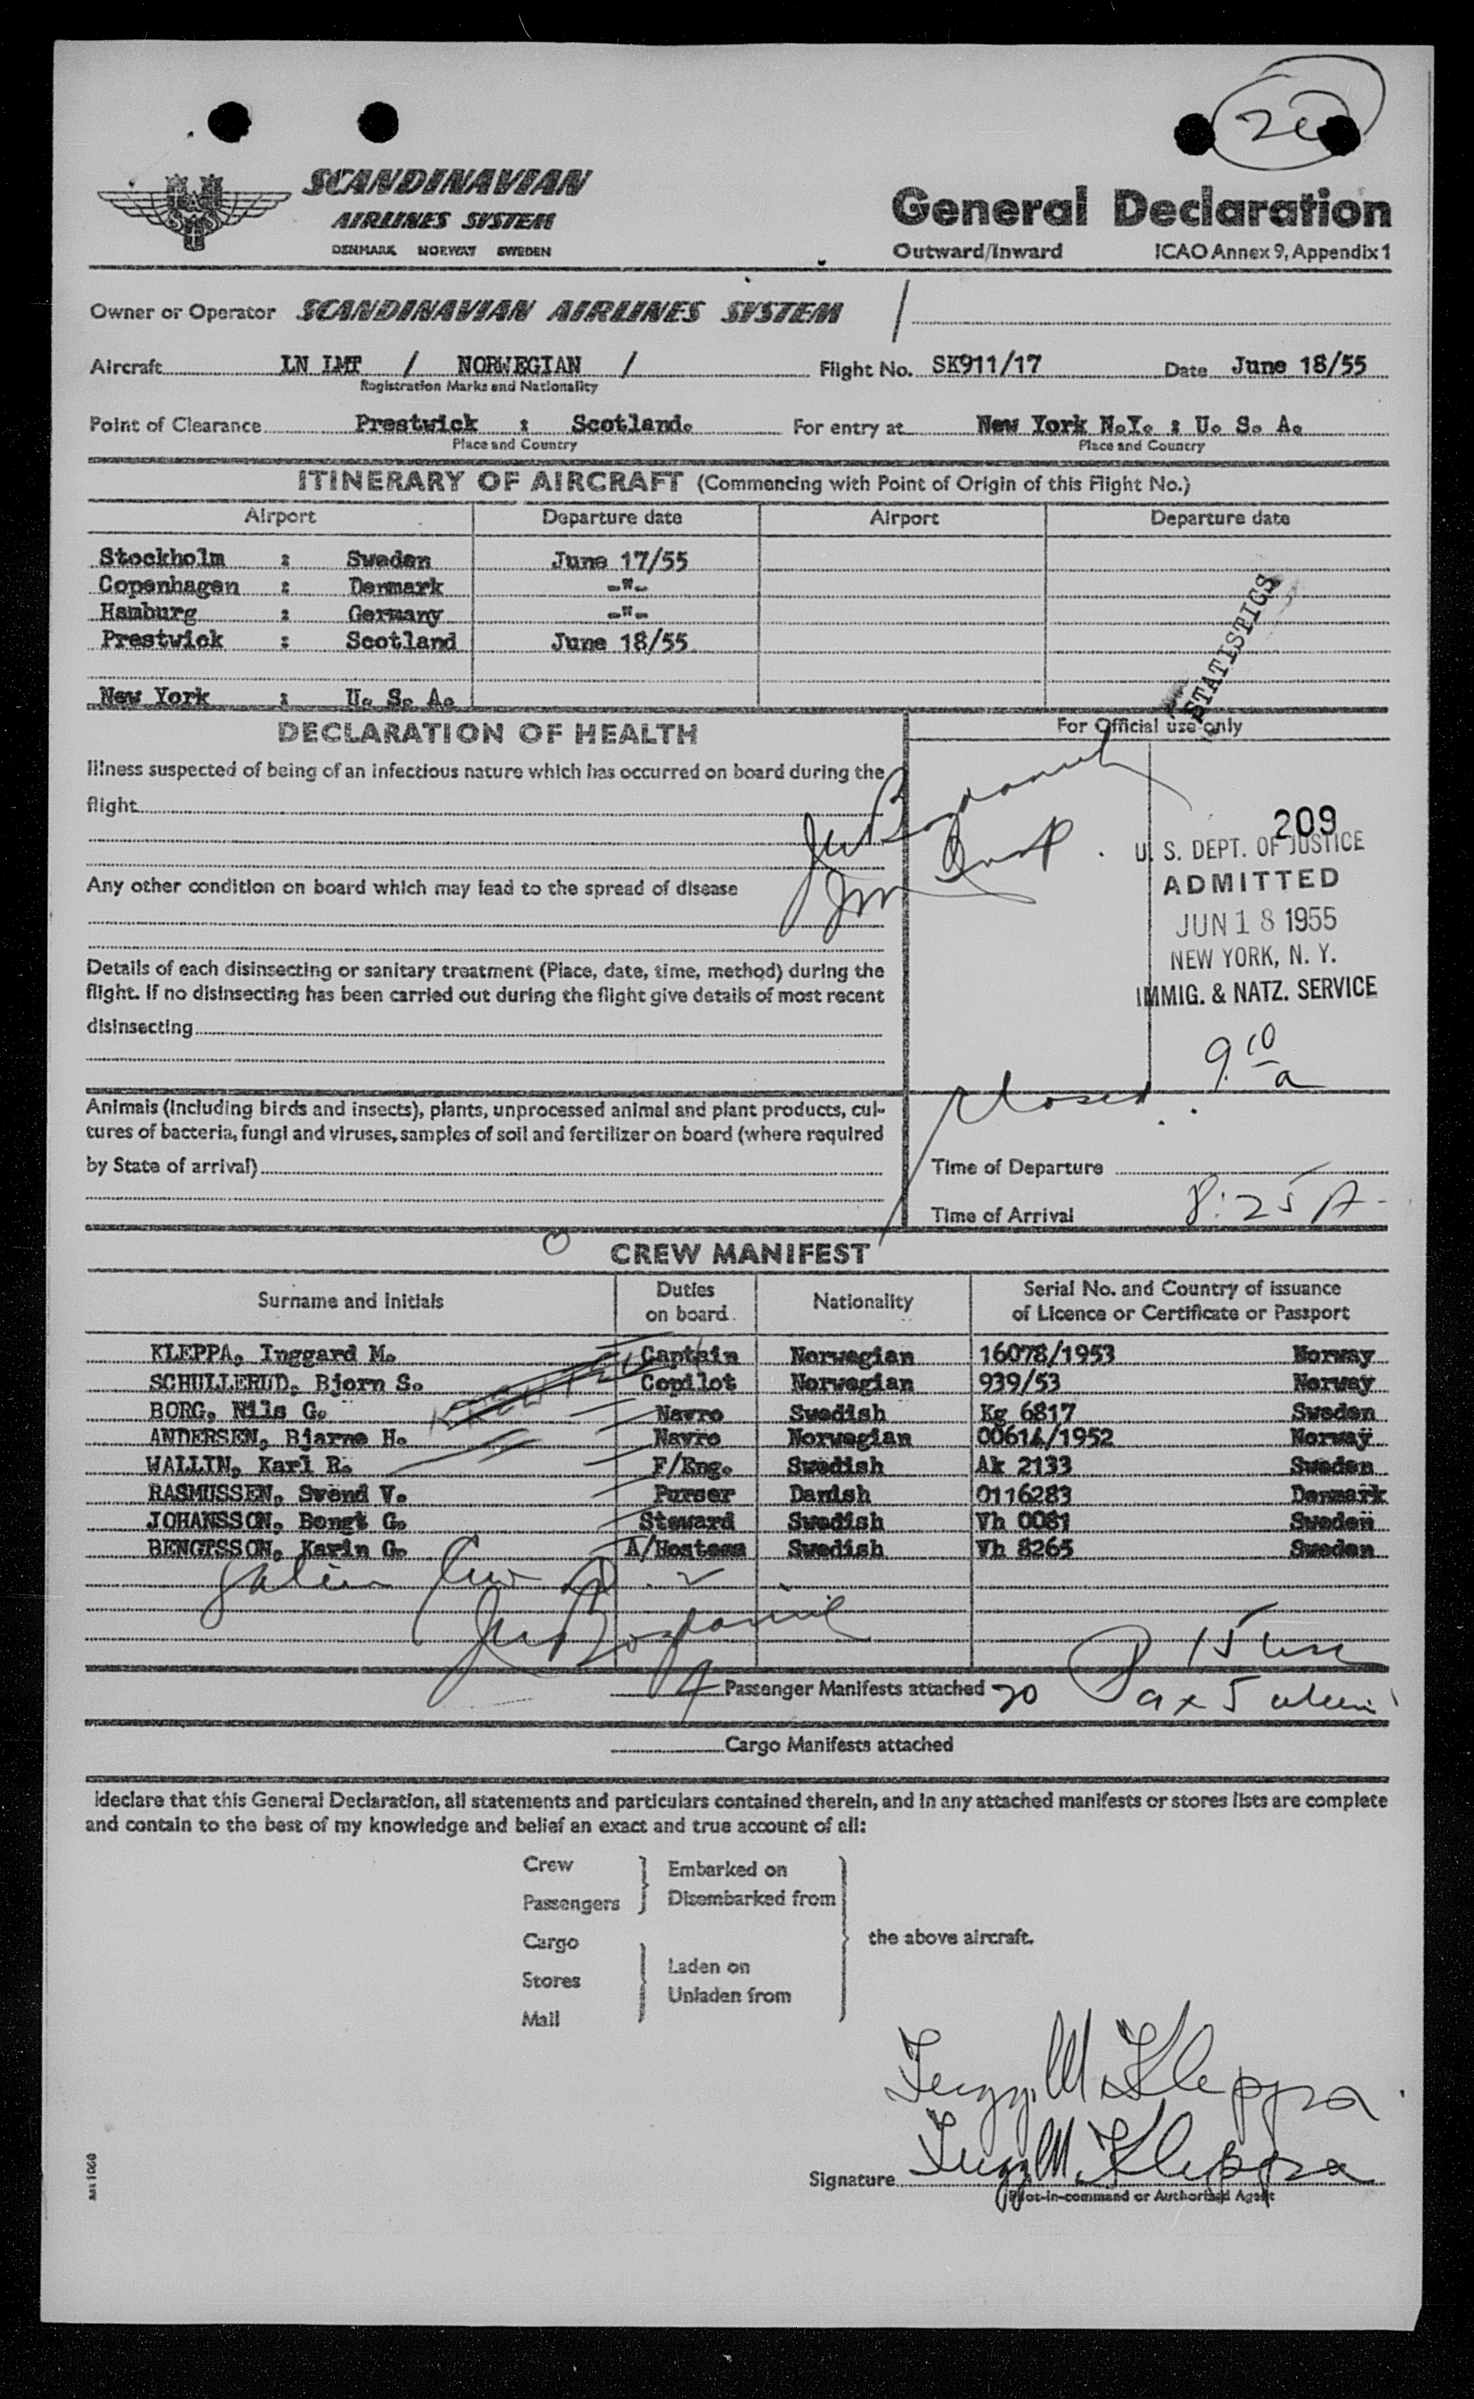 20
SCANDINAVIAN
AIRLINES SYSTEM
DENMARK NORWAY SWEDEN
General Declaration
Outward/Inward ICAO Annex 9, Appendix 1
Owner or Operator SCANDINAVIAN AIRLINES SYSTEM /
Aircraft LN LMT / NORWEGIAN / Flight No. SK911/17 Date June 18/55
Registration Marks and Nationality
Point of Clearance Prestwick : Scotland. For entry at New York N.Y. : U. S. A.
Place and Country Place and Country
ITINERARY OF AIRCRAFT (Commencing with Point of Origin of this Flight No.)
Airport Departure date Airport Departure date
Stockholm : Sweden June 17/55
Copenhagen : Denmark -"-
Hamburg : Germany -"-
Prestwick : Scotland June 18/55
New York : U. S. A.
STATISTICS
DECLARATION OF HEALTH
For Official use only
Illness suspected of being of an infectious nature which has occurred on board during the
flight
Any other condition on board which may lead to the spread of disease
Details of each disinsecting or sanitary treatment (Place, date, time, method) during the
flight. If no disinsecting has been carried out during the flight give details of most recent
disinsecting
209
U. S. DEPT. OF JUSTICE
ADMITTED
JUN 18 1955
NEW YORK, N. Y.
IMMIG. & NATZ. SERVICE
9 10 a
Closed
Animals (including birds and insects), plants, unprocessed animal and plant products, cul-
tures of bacteria, fungi and viruses, samples of soil and fertilizer on board (where required
by State of arrival)
Time of Departure
Time of Arrival 8:25 A
CREW MANIFEST
Surname and Initials Duties on board Nationality Serial No. and Country of issuance of Licence or Certificate or Passport
KLEPPA, Inggard M. Captain Norwegian 16078/1953 Norway
SCHULLERUD, Bjorn S. Copilot Norwegian 939/53 Norway
BORG, Nils G. Navro Swedish Kg 6817 Sweden
ANDERSEN, Bjarne H. Navro Norwegian 00614/1952 Norway
WALLIN, Karl R. F/Eng. Swedish Ak 2133 Sweden
RASMUSSEN, Svend V. Purser Danish 0116283 Denmark
JOHANSSON, Bengt G. Steward Swedish Vh 0081 Sweden
BENGTSSON, Karin G. A/Hostess Swedish Vh 8265 Sweden
4 Passenger Manifests attached 20 Pax 15 usc
5 alien
Cargo Manifests attached
I declare that this General Declaration, all statements and particulars contained therein, and in any attached manifests or stores lists are complete
and contain to the best of my knowledge and belief an exact and true account of all:
Crew
Passengers
Embarked on
Disembarked from
Cargo
Stores
Mail
Laden on
Unladen from
the above aircraft.
Ingg. M. Kleppa
Signature Ingg. M. Kleppa
Pilot-in-command or Authorized Agent